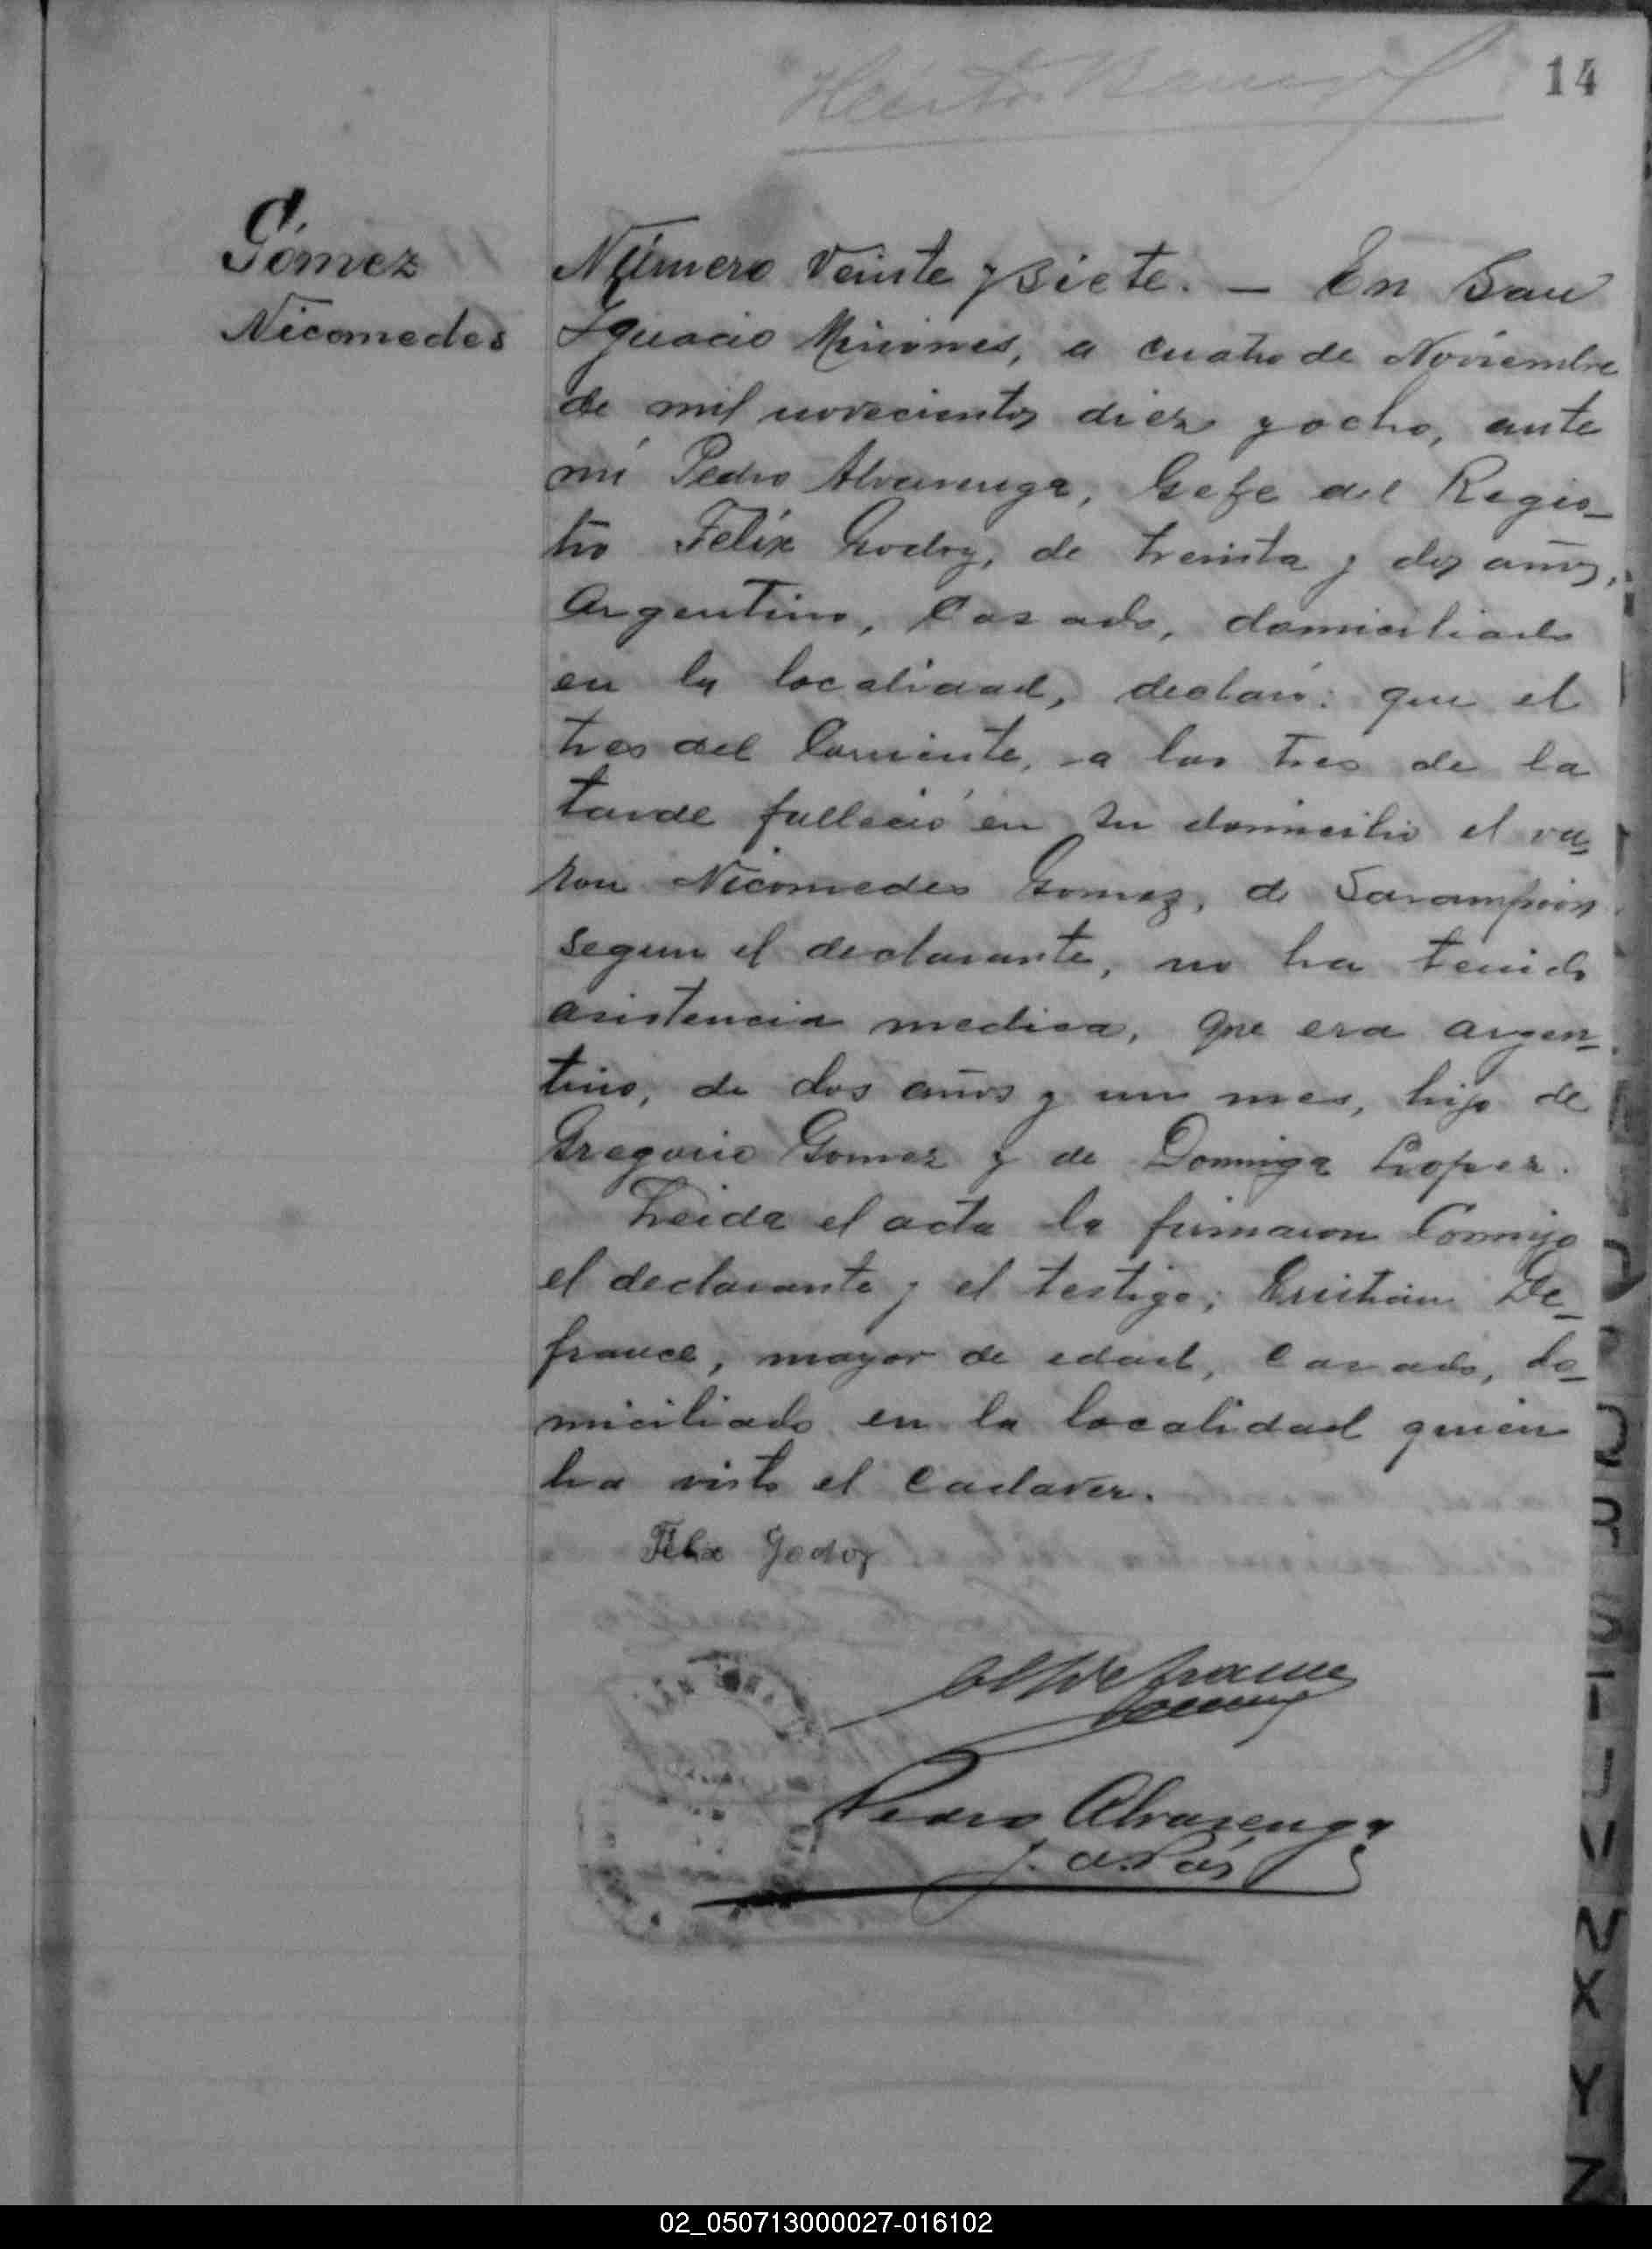 14
Gómez
Nicomedes
Número veinte y siete. — En San
Ignacio Misiones, a cuatro de Noviembre
de mil novecientos diez y ocho, ante
mi Pedro Alvarenga, Gefe del Regis-
tro Felix Godoy, de treinta y dos años,
Argentino, Casado, domiciliado
en la localidad, declaró: que el
tres del Corriente, a las tres de la
tarde falleció en su domicilio el va-
ron Nicomedes Gomez, de Sarampion
segun el declarante, no ha tenido
asistencia medica, que era argen-
tino, de dos años y un mes, hijo de
Gregorio Gomez y de Dominga Lopez.
Leida el acta la firmaron Conmigo
el declarante y el testigo; Cristián De-
france, mayor de edad, Casado, do-
miciliado en la localidad quien
ha visto el Cadaver.
Felix Godoy
Defrance
Pedro Alvarenga
J. de Paz
N
X
Y
Z
02_050713000027-016102